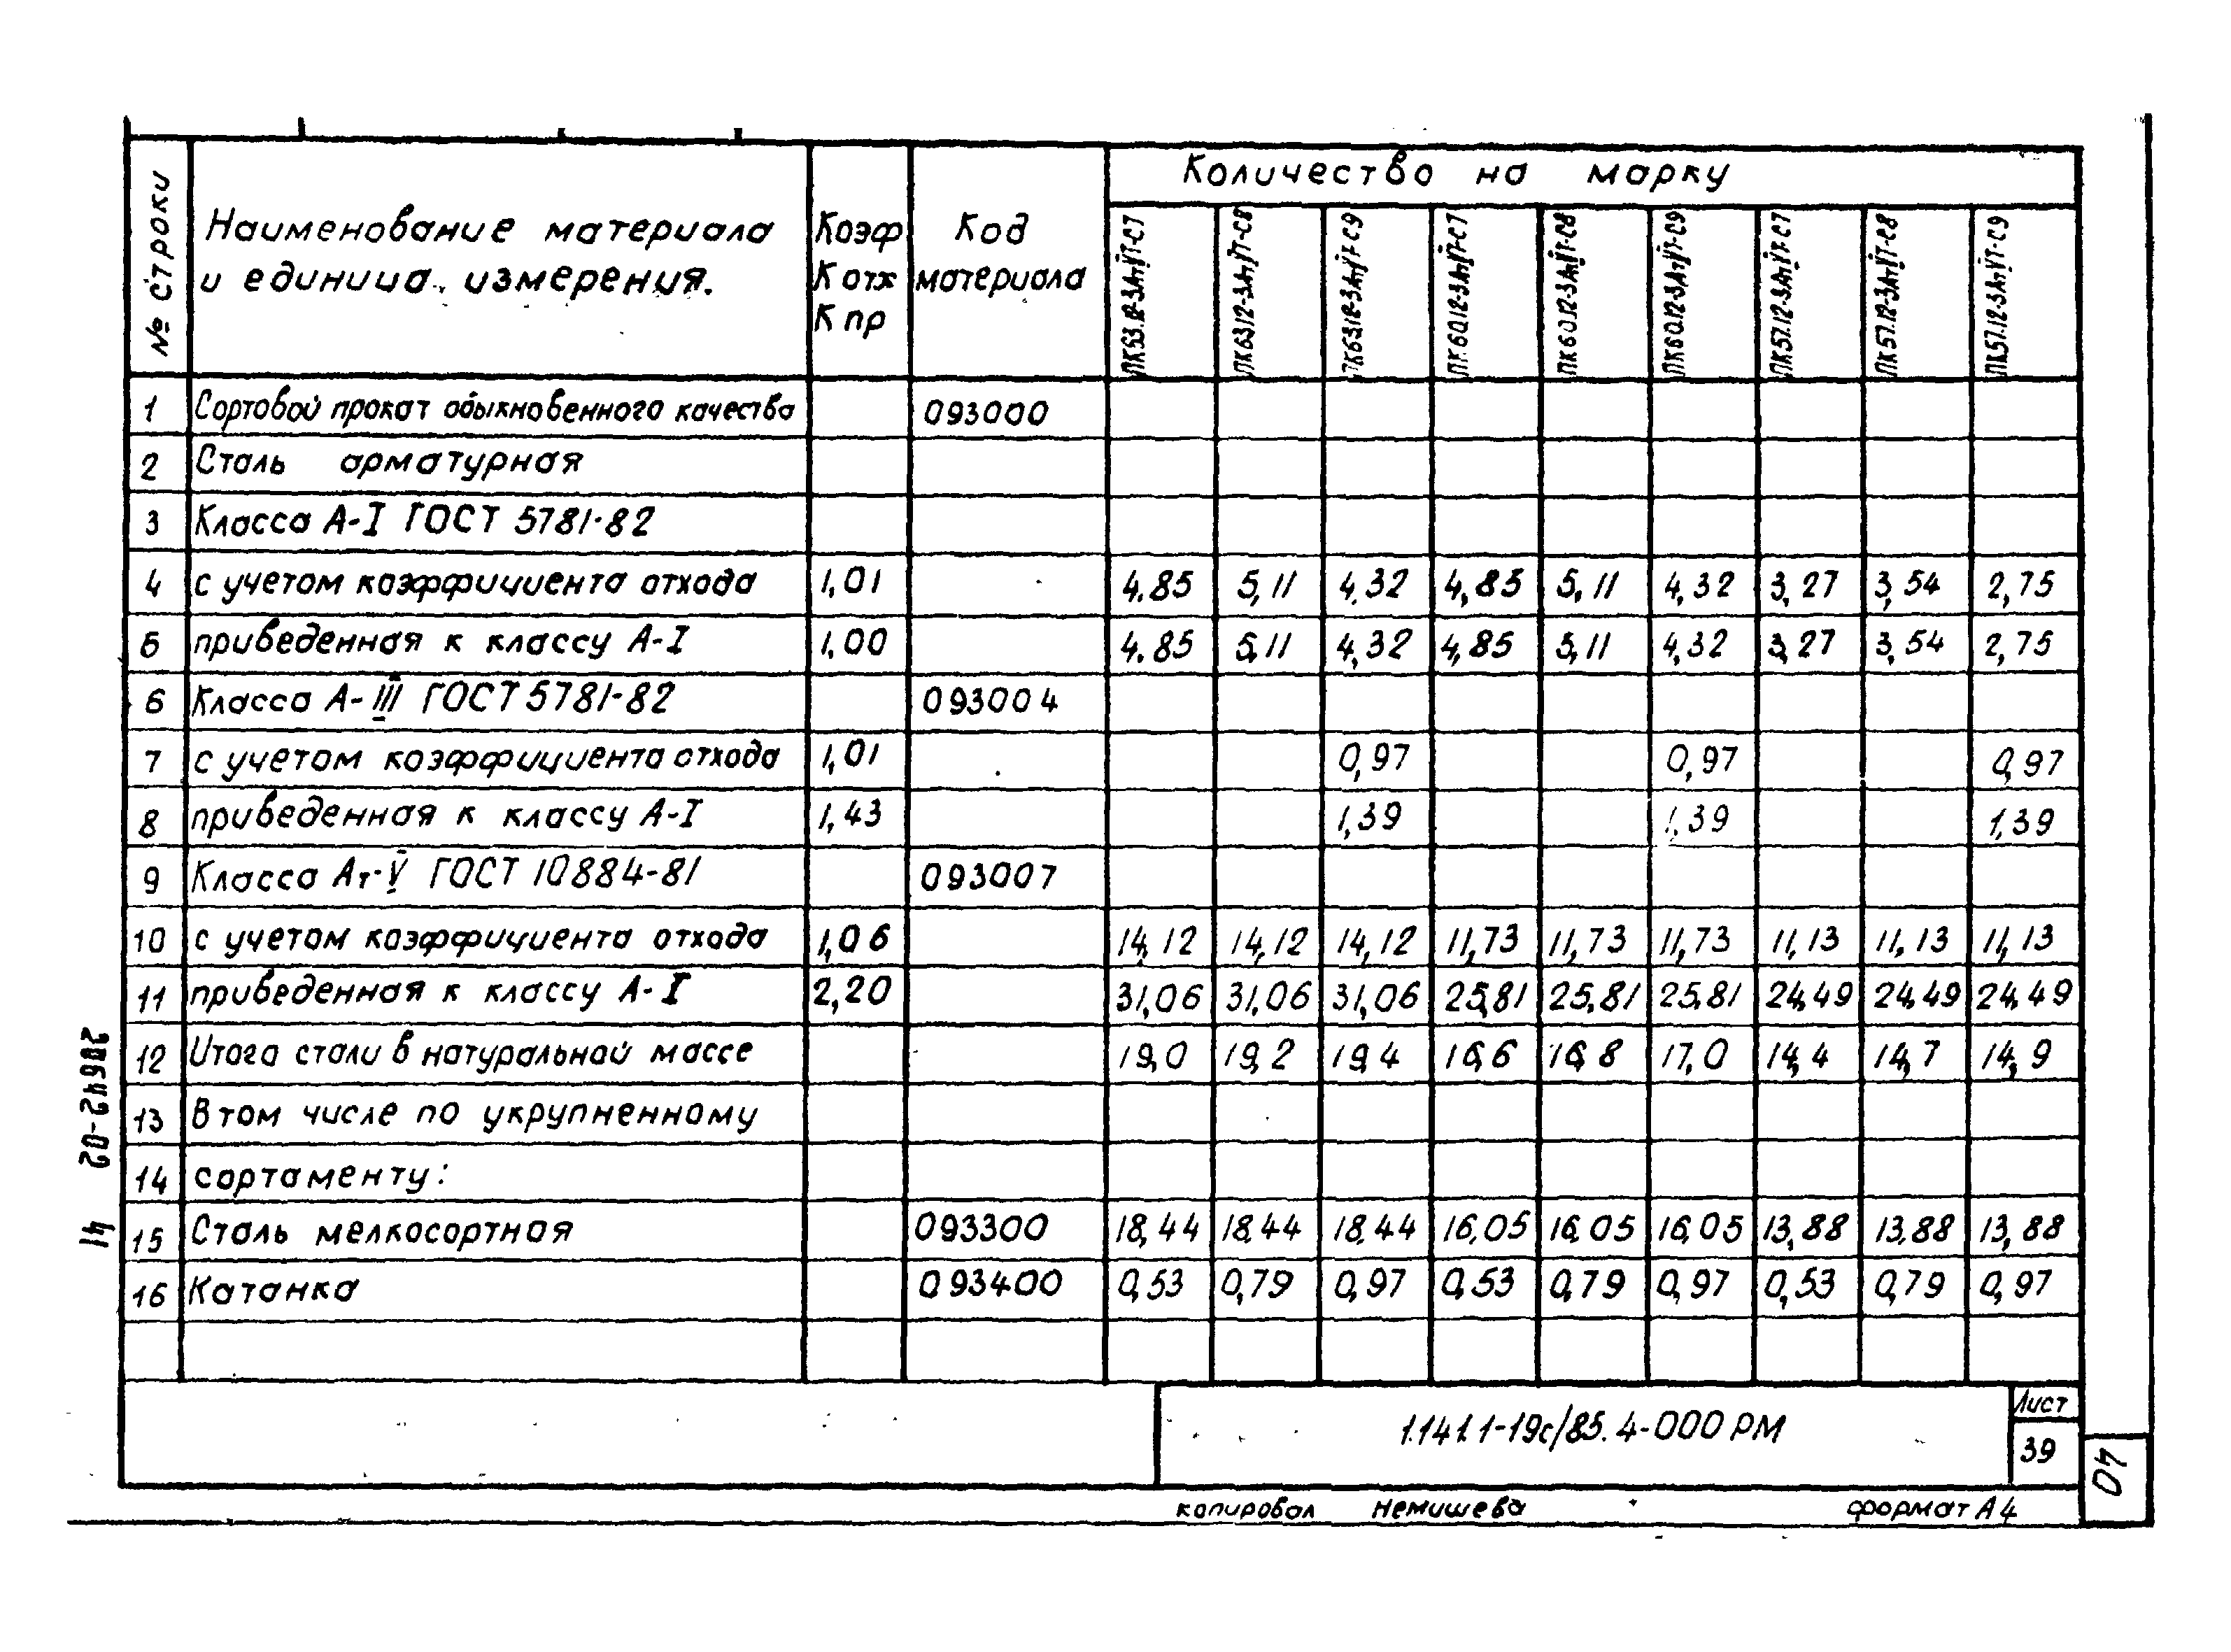 Количество на марку
№ строки
Наименование материала и единица измерения.
Коэф
К отх
К пр
Код материала
ПК63.12-3АтVТ-С7
ПК63.12-3АтVТ-С8
ПК63.12-3АтVТ-С9
ПК60.12-3АтVТ-С7
ПК60.12-3АтVТ-С8
ПК60.12-3АтVТ-С9
ПК57.12-3АтVТ-С7
ПК57.12-3АтVТ-С8
ПК57.12-3АтVТ-С9
1 Сортовой прокат обыкновенного качества 093000
2 Сталь арматурная
3 Класса А-I ГОСТ 5781-82
4 с учетом коэффициента отхода 1,01 4.85 5,11 4.32 4,85 5,11 4,32 3,27 3,54 2,75
5 приведенная к классу А-I 1,00 4.85 5,11 4,32 4,85 5,11 4,32 3,27 3,54 2,75
6 Класса А-III ГОСТ 5781-82 093004
7 с учетом коэффициента отхода 1,01 0,97 0,97 0,97
8 приведенная к классу А-I 1,43 1,39 1,39 1,39
9 Класса Ат-V ГОСТ 10884-81 093007
10 с учетом коэффициента отхода 1,06 14,12 14,12 14,12 11,73 11,73 11,73 11,13 11,13 11,13
11 приведенная к классу А-I 2,20 31,06 31,06 31,06 25,81 25,81 25,81 24,49 24,49 24,49
12 Итого стали в натуральной массе 19,0 19,2 19,4 16,6 16,8 17,0 14,4 14,7 14,9
13 В том числе по укрупненному
14 сортаменту:
15 Сталь мелкосортная 093300 18,44 18.44 18.44 16,05 16.05 16,05 13,88 13,88 13,88
16 Катанка 093400 0,53 0,79 0,97 0,53 0,79 0,97 0,53 0,79 0,97
20642-02 41
1.141.1-19с/85.4-000 РМ
Лист
39
40
копировал Немишева формат А4